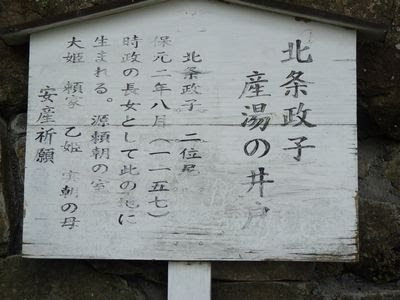 北条政子
産湯の井戸
北条政子 二位尼
保元二年八月(一一五七)
時政の長女として此の地に
生まれる。源頼朝の室
大姫 頼家 乙姫 実朝の母
安産祈願